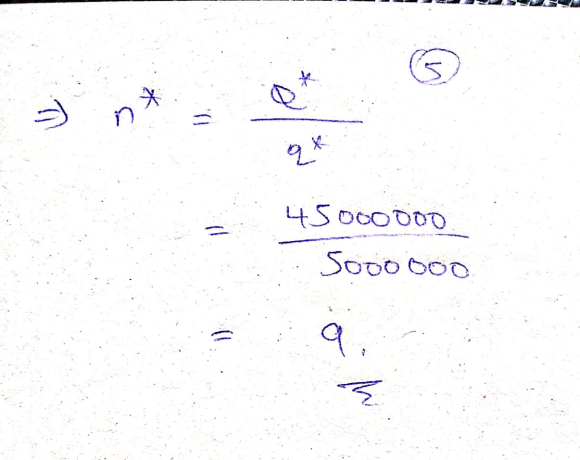 5
⇒ n* = Q* / q*
= 45000000 / 5000000
= 9.